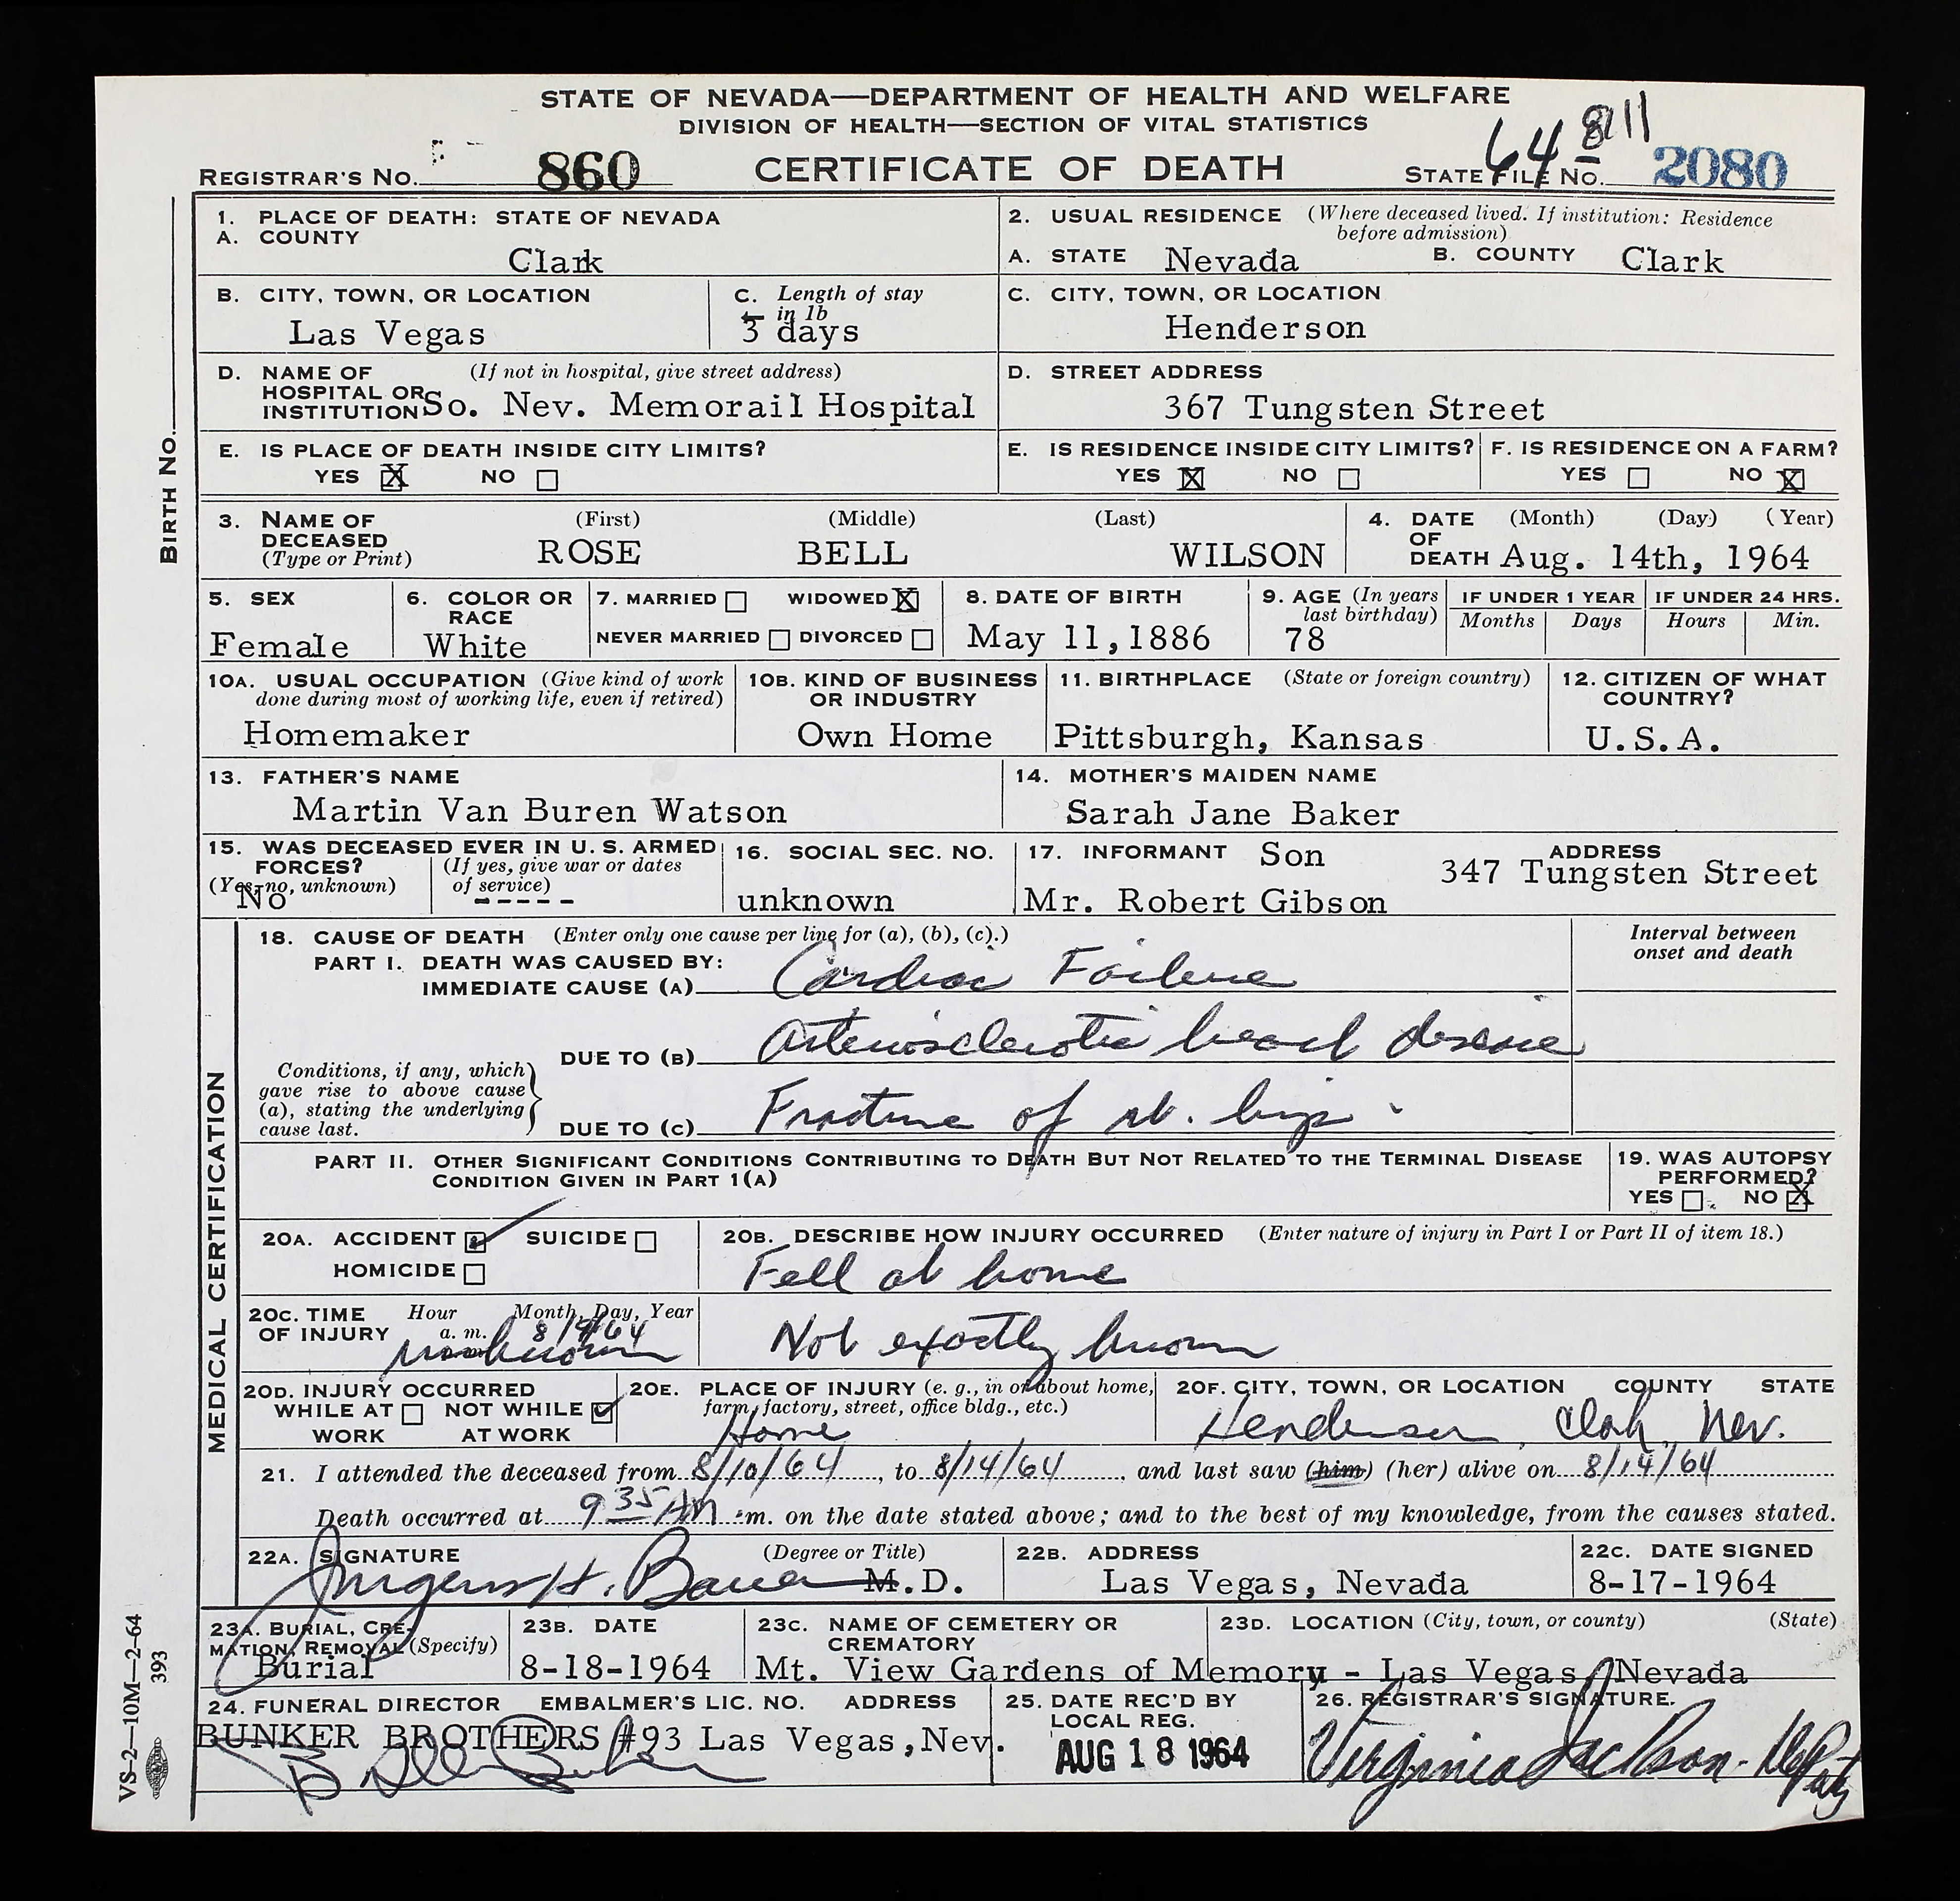 STATE OF NEVADA—DEPARTMENT OF HEALTH AND WELFARE
DIVISION OF HEALTH—SECTION OF VITAL STATISTICS
REGISTRAR'S NO. 860 CERTIFICATE OF DEATH STATE FILE NO. 64 - 2080
8111
BIRTH NO.
1. PLACE OF DEATH: STATE OF NEVADA
A. COUNTY
Clark
2. USUAL RESIDENCE (Where deceased lived. If institution: Residence
before admission)
A. STATE Nevada B. COUNTY Clark
B. CITY, TOWN, OR LOCATION
Las Vegas
C. Length of stay
in 1b
3 days
C. CITY, TOWN, OR LOCATION
Henderson
D. NAME OF (If not in hospital, give street address)
HOSPITAL OR
INSTITUTION So. Nev. Memorail Hospital
D. STREET ADDRESS
367 Tungsten Street
E. IS PLACE OF DEATH INSIDE CITY LIMITS?
YES X NO
E. IS RESIDENCE INSIDE CITY LIMITS?
YES X NO
F. IS RESIDENCE ON A FARM?
YES NO X
3. NAME OF (First) (Middle) (Last)
DECEASED
(Type or Print) ROSE BELL WILSON
4. DATE (Month) (Day) (Year)
OF
DEATH Aug. 14th, 1964
5. SEX
Female
6. COLOR OR
RACE
White
7. MARRIED WIDOWED X
NEVER MARRIED DIVORCED
8. DATE OF BIRTH
May 11,1886
9. AGE (In years
last birthday)
78
IF UNDER 1 YEAR
Months Days
IF UNDER 24 HRS.
Hours Min.
10A. USUAL OCCUPATION (Give kind of work
done during most of working life, even if retired)
Homemaker
10B. KIND OF BUSINESS
OR INDUSTRY
Own Home
11. BIRTHPLACE (State or foreign country)
Pittsburgh, Kansas
12. CITIZEN OF WHAT
COUNTRY?
U.S.A.
13. FATHER'S NAME
Martin Van Buren Watson
14. MOTHER'S MAIDEN NAME
Sarah Jane Baker
15. WAS DECEASED EVER IN U. S. ARMED
FORCES? (If yes, give war or dates
(Yes, no, unknown) of service)
No -----
16. SOCIAL SEC. NO.
unknown
17. INFORMANT Son ADDRESS
347 Tungsten Street
Mr. Robert Gibson
MEDICAL CERTIFICATION
18. CAUSE OF DEATH (Enter only one cause per line for (a), (b), (c).)
Interval between
onset and death
PART I. DEATH WAS CAUSED BY:
IMMEDIATE CAUSE (A) Cardiac Failure
DUE TO (B) Arteriosclerotic heart disease
Conditions, if any, which
gave rise to above cause
(a), stating the underlying
cause last.
DUE TO (C) Fracture of rt. hip.
PART II. OTHER SIGNIFICANT CONDITIONS CONTRIBUTING TO DEATH BUT NOT RELATED TO THE TERMINAL DISEASE
CONDITION GIVEN IN PART 1(A)
19. WAS AUTOPSY
PERFORMED?
YES NO X
20A. ACCIDENT SUICIDE
HOMICIDE
20B. DESCRIBE HOW INJURY OCCURRED (Enter nature of injury in Part I or Part II of item 18.)
Fell at home
20C. TIME Hour Month, Day, Year
OF INJURY a. m. 8/9/64
unknown
Not exactly known
20D. INJURY OCCURRED
WHILE AT NOT WHILE
WORK AT WORK
20E. PLACE OF INJURY (e. g., in or about home,
farm, factory, street, office bldg., etc.)
Home
20F. CITY, TOWN, OR LOCATION COUNTY STATE
Henderson, Clark, Nev.
21. I attended the deceased from 8/10/64, to 8/14/64, and last saw (him) (her) alive on 8/14/64
Death occurred at 9 35 AM m. on the date stated above; and to the best of my knowledge, from the causes stated.
22A. SIGNATURE (Degree or Title)
H. Bauer M.D.
22B. ADDRESS
Las Vegas, Nevada
22C. DATE SIGNED
8-17-1964
23A. BURIAL, CRE-
MATION, REMOVAL (Specify)
Burial
23B. DATE
8-18-1964
23C. NAME OF CEMETERY OR
CREMATORY
Mt. View Gardens of Memory -
23D. LOCATION (City, town, or county) (State)
Las Vegas, Nevada
24. FUNERAL DIRECTOR EMBALMER'S LIC. NO. ADDRESS
BUNKER BROTHERS #93 Las Vegas,Nev.
25. DATE REC'D BY
LOCAL REG.
AUG 18 1964
26. REGISTRAR'S SIGNATURE.
Virginia Jackson - Deputy
VS—2—10M—2-64
393